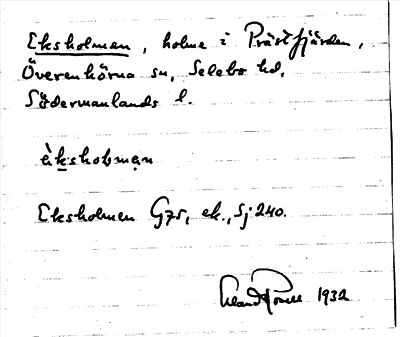 Eksholmen, holme i Prästfjärden,
Överenhörna sn, Selebo hd,
Södermanlands l.
èksholmən
Eksholmen G75, ek., Sj 240.
1932